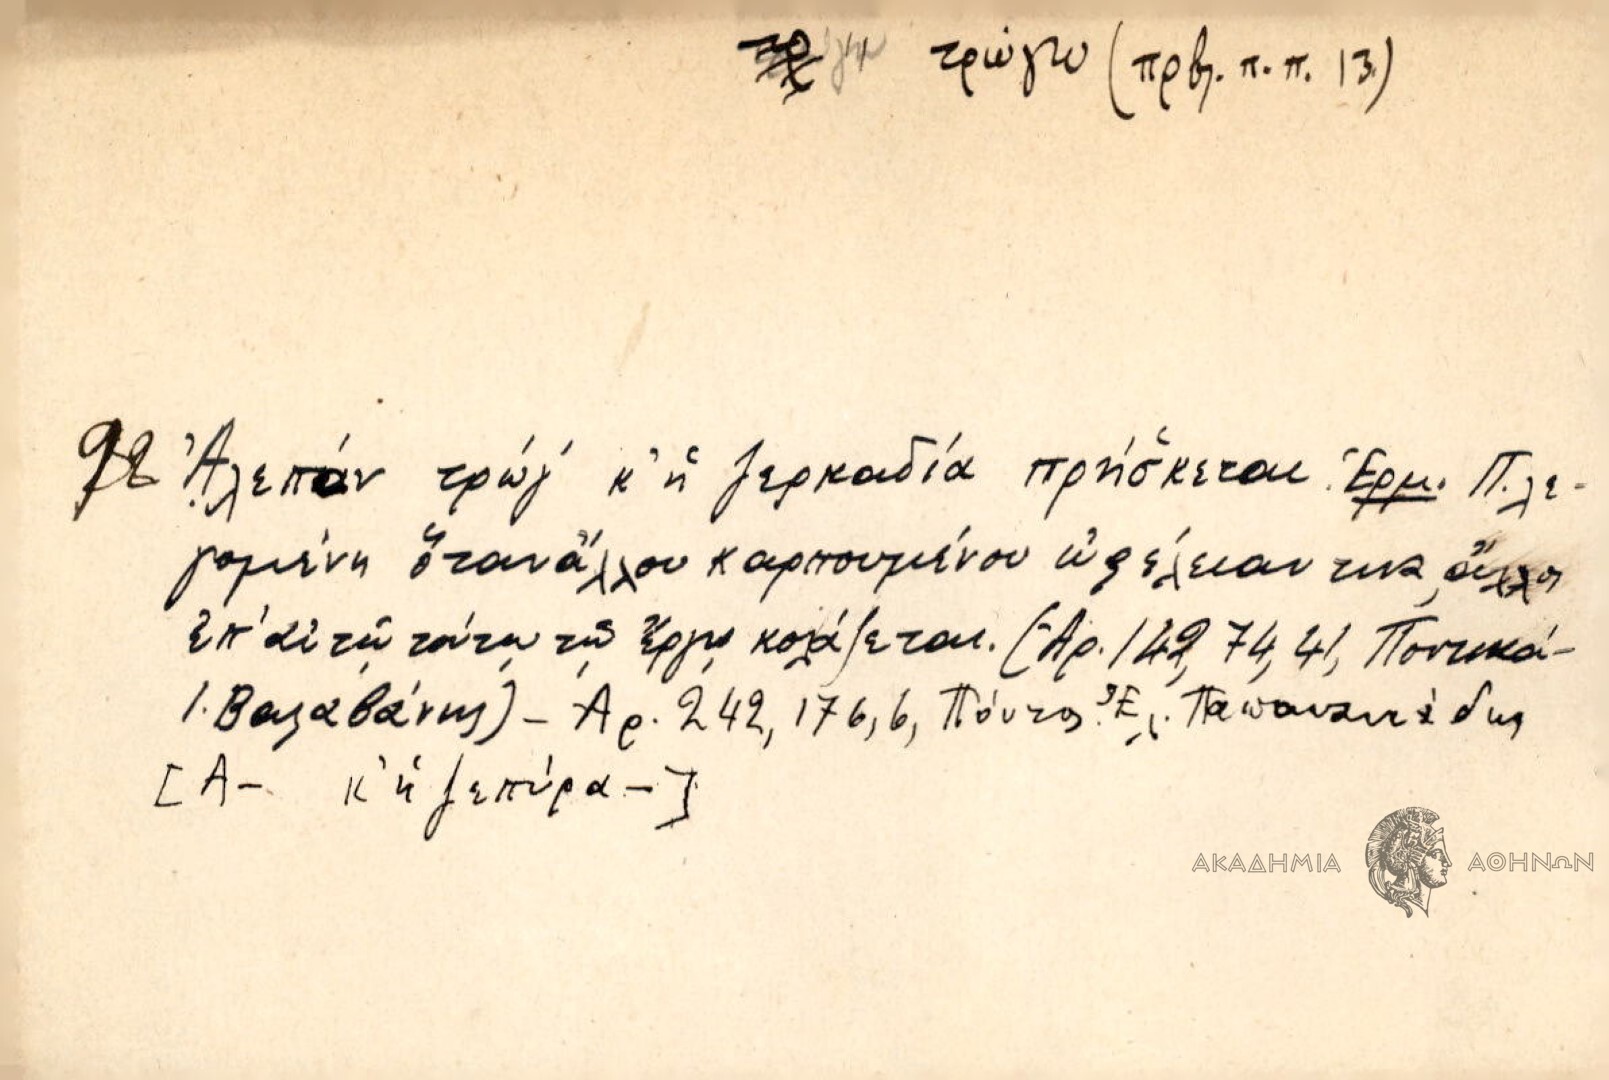 τρώγω (πρβλ. π.π. 13)
98 Ἀλεπὰν τρώγ' κ' ἡ ζερκαδία πρήσκεται. Ἑρμ. Π. λε-
γομένη ὅταν ἄλλου καρπουμένου ὠφέλειαν τινα, ἄλλος
ἐπ' αὐτῷ τούτῳ τῷ ἔργῳ κολάζεται. (Ἀρ. 149, 74, 41, Ποντικά-
Ι. Βαλαβάνης) - Ἀρ. 242, 176, 6, Πόντος. Ἐλ. Παπαναστ
[Α- κ' ἡ ζεπύρα -]
ΑΚΑΔΗΜΙΑ ΑΘΗΝΩΝ